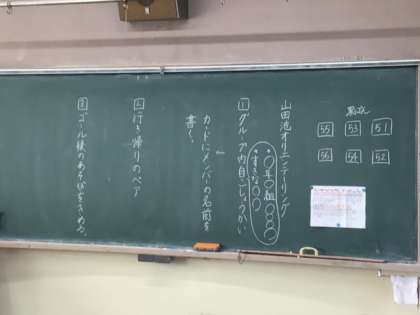 黒板
51
53
55
52
54
56
山田池オリエンテーリング
1 グループ内自こしょうかい
・〇年〇組〇〇〇〇
・すきな〇〇
カードにメンバーの名前を
書く。
2 行き帰りのペア
3 ゴール後のあそびをきめる。